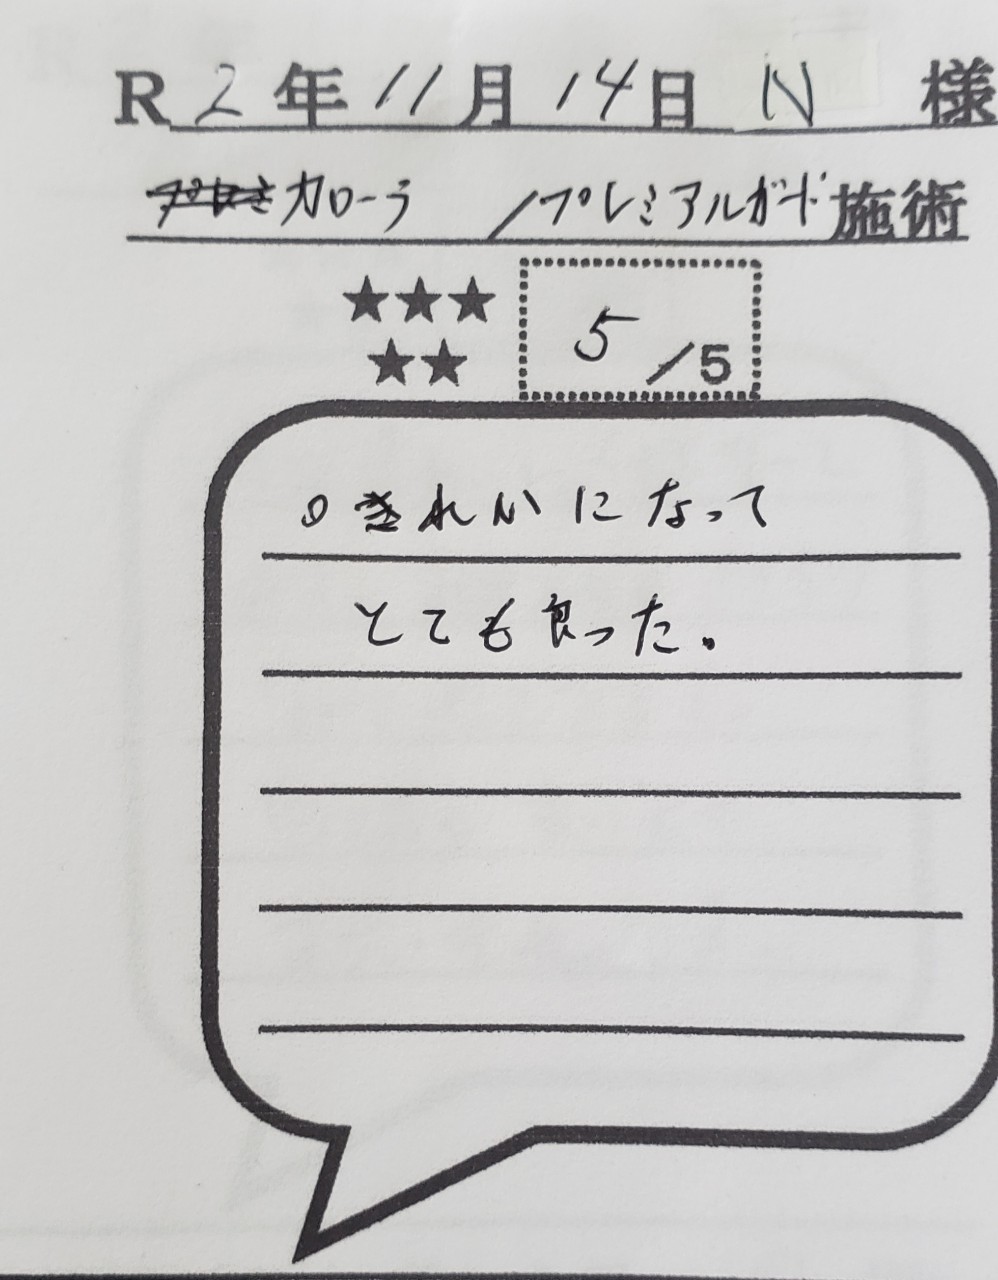 R2年11月14日 N 様
カローラ /プレミアルガード施術
★★★
★★
5/5
○きれいになって
とても良った。